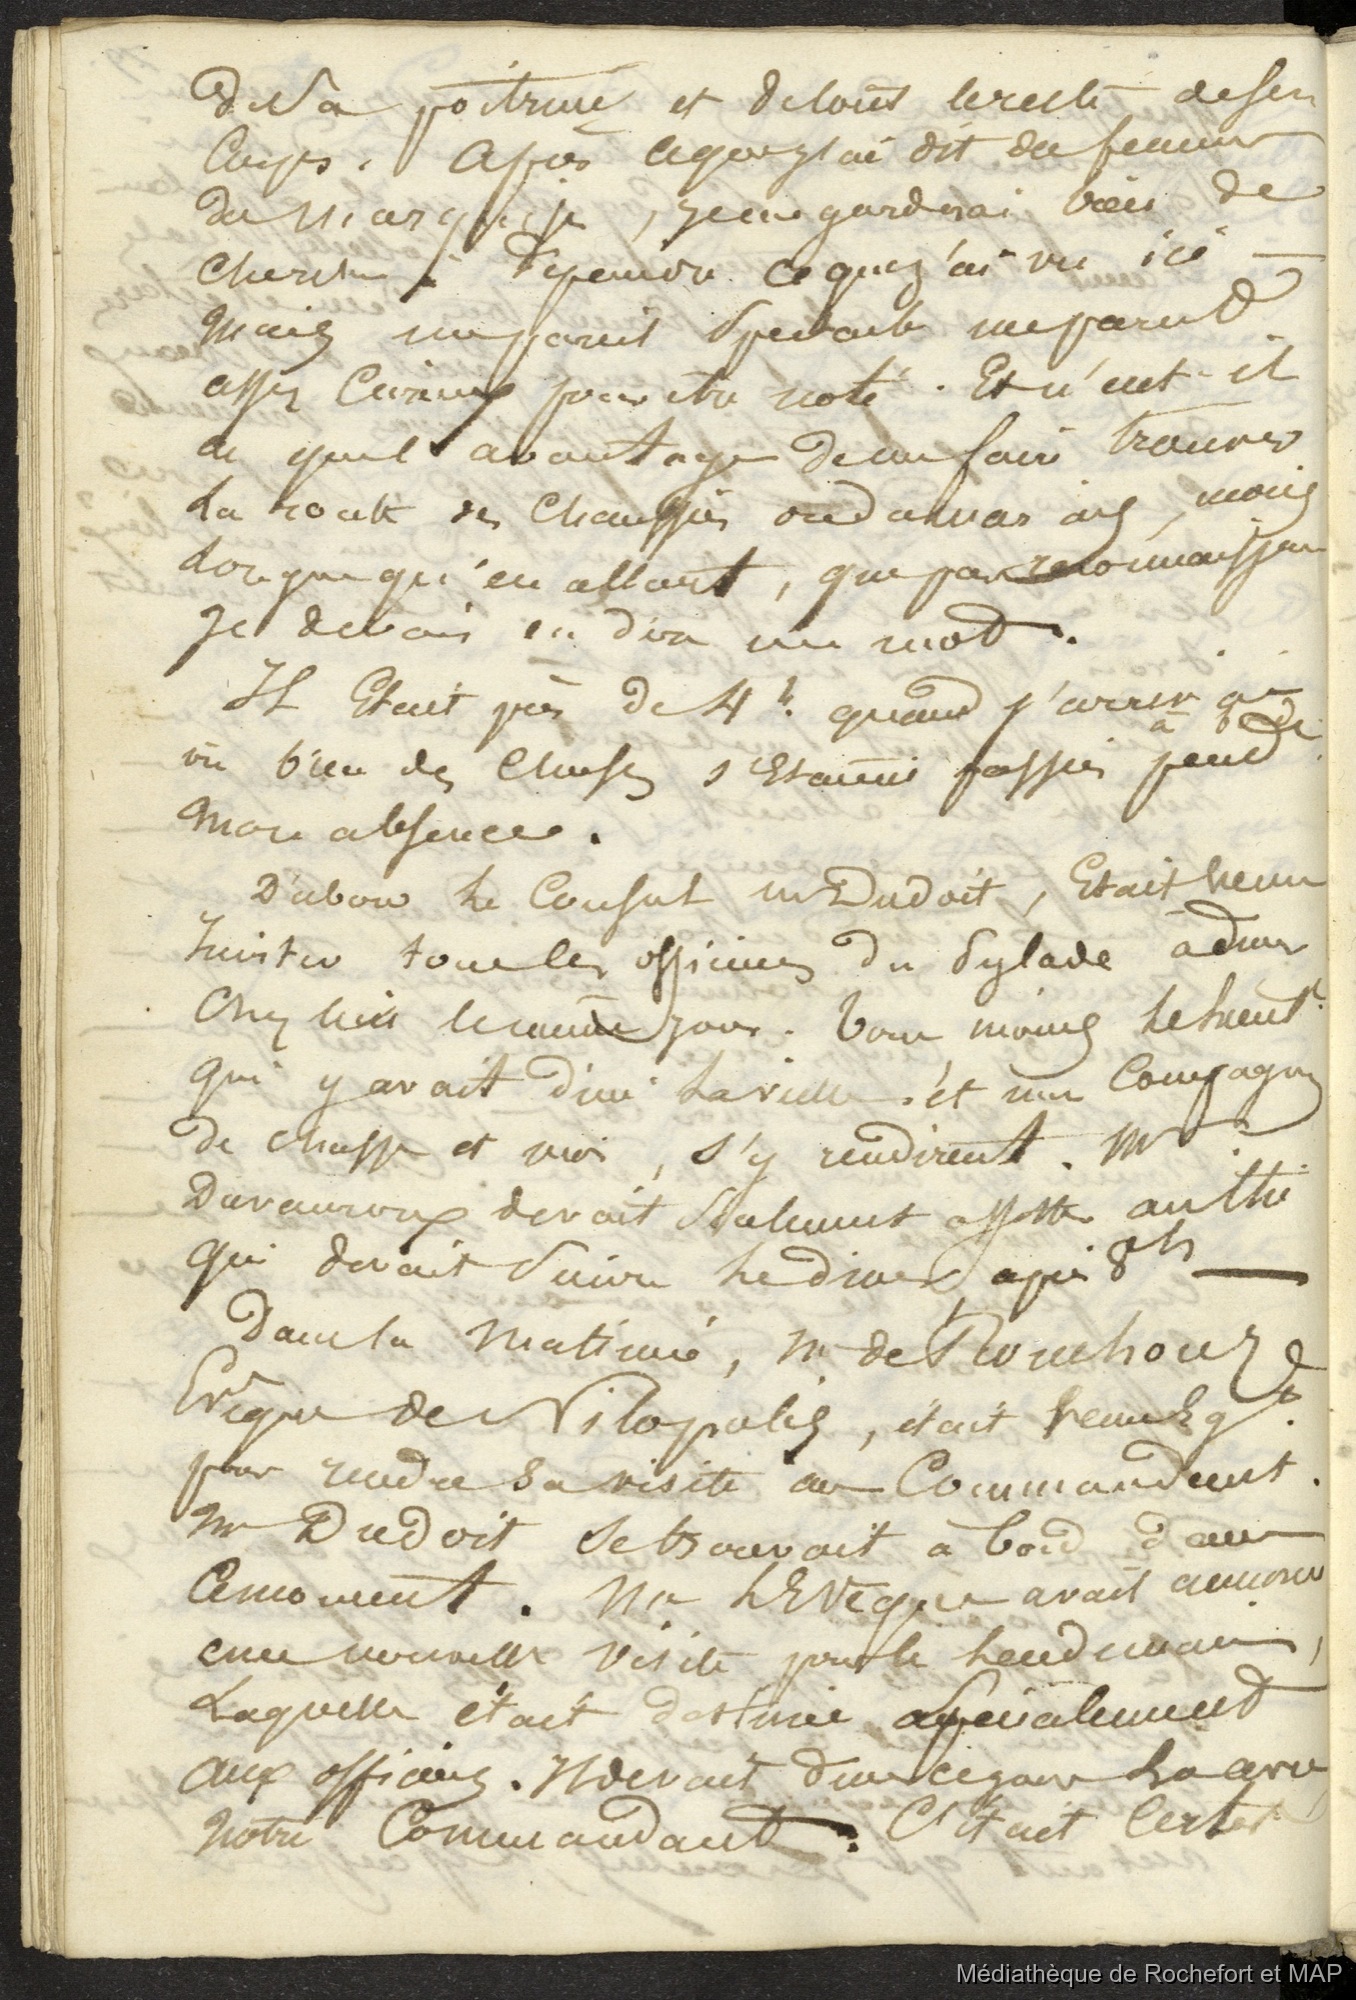 de sa poitrine et de tout le reste de son
Corps. Après ce que j'ai dit des femmes
des Marquises, je me garderai bien de
chercher à dépeindre ce que j'ai vu ici —
Mais un pareil Spectacle me parut
assez Curieux pour être noté. Et n'eut-il
eu quel avantage de me faire trouver
La route des Chaussées moins
Longue qu'en allant, que par reconnaissance
Je devais en dire un mot.
Il Etait près de 4h. quand j'arrivai à bord
où bien des Choses s'Etaient passées pendt
Mon absence.
D'abord le Consul Mr Dudoit, Etait venu
Inviter tous les officiers du Pylade à diner
Chez lui le même jour. Tous moins le lieutt
qui y avait diné la veille et mon Compagnon
de chasse et moi, s'y rendirent. Mr
devait Seulement assister au thé
qui devait Suivre le diner après 8h —
Dans la Matinée, Mr de Rouchouze
Evêque de Nilopolis, était venu
pour rendre Sa visite au Commandant.
Mr Dudoit Se trouvait à bord dans
Ce moment. Mr L'Evêque avait annoncé
une nouvelle Visite pour le Lendemain,
Laquelle était destinée Spécialement
aux officiers. Il devait diner ce jour là avec
Notre Commandant. C'était
Médiathèque de Rochefort et MAP